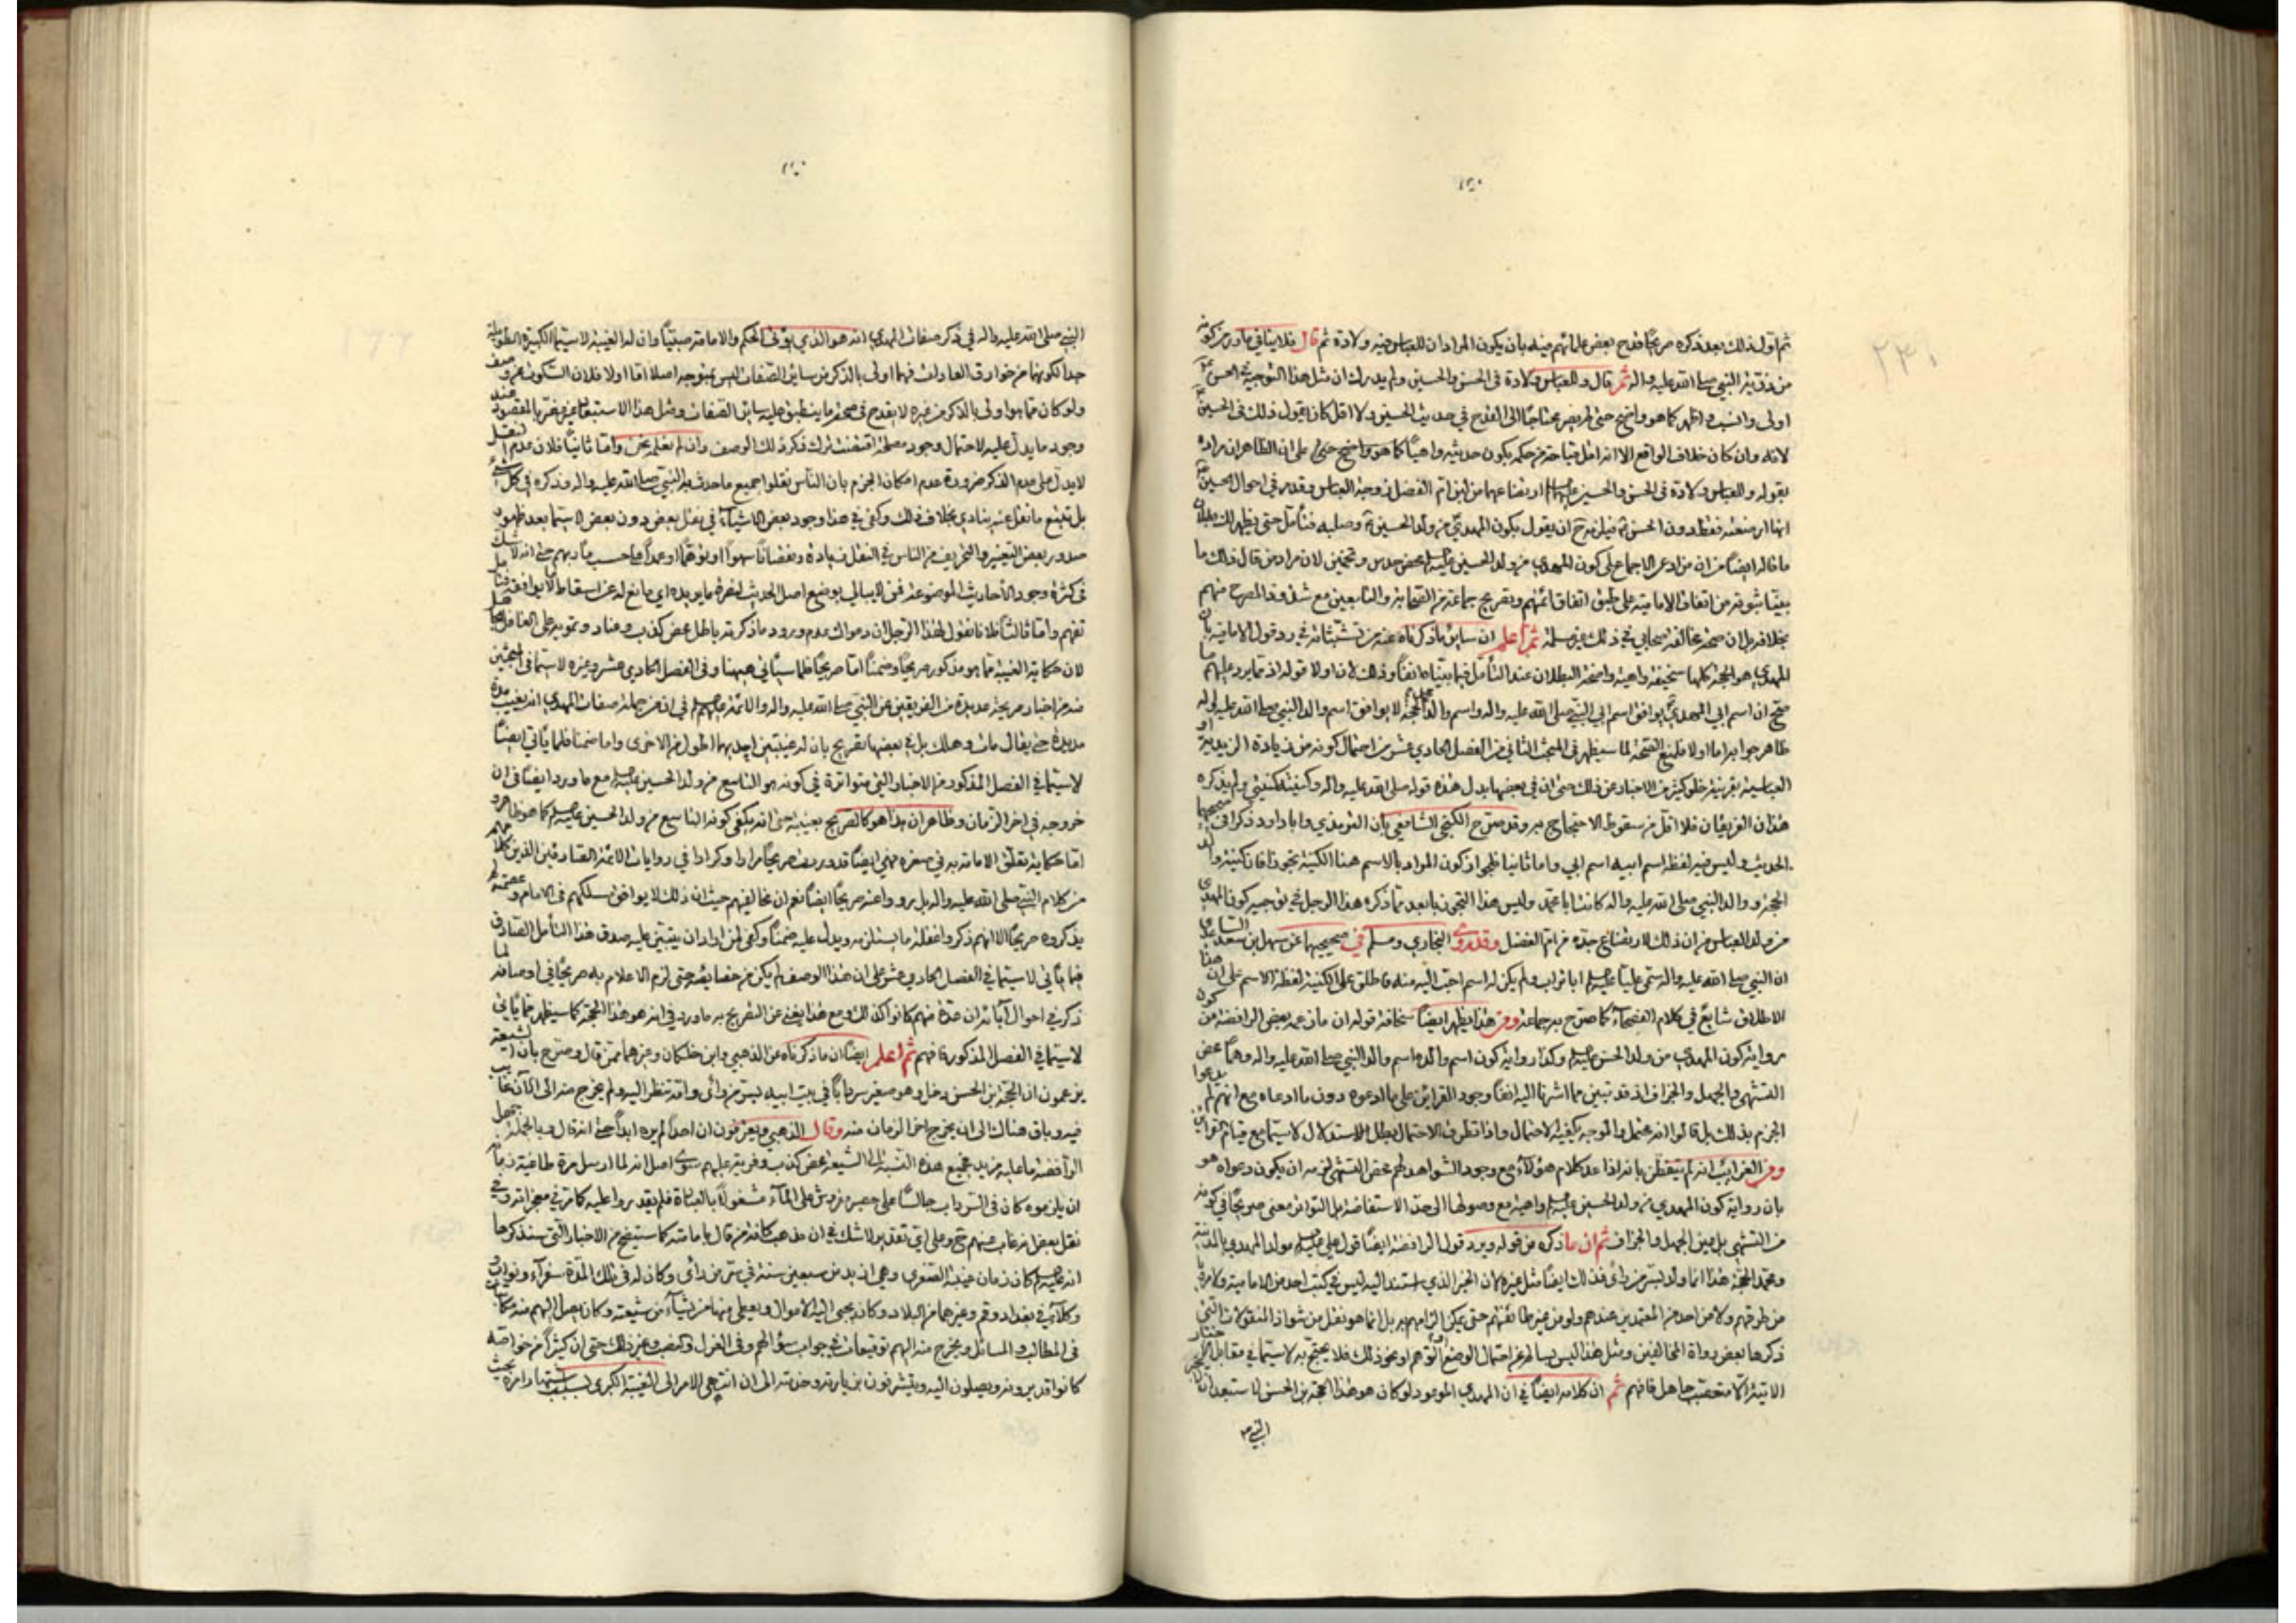 ثم اول ذلك بعد ذكره صريحا قدح بعض علمائهم فيه بان يكون المراد ان للعباس فيه ولادة ثم قال فلا ينافي ما ورد من كونه
من ذرية النبي صلى الله عليه واله ثم قال وللعباس ولادة في الحسن والحسين ولم يدر ان مثل هذا التوجيه في الحسن
اولى وانسب واظهر كما هو واضح حتى لم يصر محتاجا الى القدح في حديث الحسين ولا اقل كان يقول ذلك في الحسين
لانه وان كان خلاف الواقع الا انه اقل قباحة من حكمه بكون حديثه واهيا كما هو واضح على ان الظاهر ان مراده
بقوله وللعباس ولادة في الحسن والحسين ارتضاعهما من لبن ام الفضل زوجة العباس وقد مر في احوال الحسين
انها ارضعته فقط دون الحسن فيلزمه ح ان يقول بكون المهدي من ولد الحسين وصلبه فتأمل حتى يظهر لك بطلان
ما قاله ايضا من ان من ادعى الاجماع على كون المهدي من ولد الحسين محض حدس وتخمين لان مراد من قال ذلك ما
بينا ثبوته من اتفاق الامامية على طبق اتفاق ائمتهم وتصريح جماعة من الصحابة والتابعين مع شذوذ المصرح منهم
بخلافه بل ان صحة مخالفة صحابي في ذلك غير مسلمة ثم اعلم ان ساير ما ذكرناه عنه من تشبثاته في رد قول الامامية بان
المهدي هو الحجة كلها سخيفة واهية واضحة البطلان عند التأمل فيما بيناه انفا وذلك لان اولا قوله ان مما يرد عليهم ما
صح ان اسم ابي المهدي يوافق اسم ابي النبي صلى الله عليه واله واسم والد الحجة لا يوافق اسم والد النبي صلى الله عليه واله
ظاهر جوابه اما اولا فلمنع الصحة لما سيظهر في المبحث الثاني من الفصل الحادي عشر من احتمال كونه من زيادة الزيدية او
العباسية بقرينة خلو كثير من الاخبار عن ذلك حتى ان في بعضها بدل هذه قوله صلى الله عليه واله وكنيته ككنيتي ولم يذكره
هذان الفريقان فلا اقل من سقوط الاحتجاج به وقد صرح الكنجي الشافعي بان الترمذي وابا داود ذكرا في صحيحهما
الحديث وليس فيه لفظ اسم ابيه اسم ابي واما ثانيا فلجواز كون المراد بالاسم هنا الكنية تجوزا فان كنية والد
الحجة ووالد النبي صلى الله عليه واله كانت ابا محمد وليس هذا التجوز بابعد مما ذكره هذا الرجل في توجيه كون المهدي
من ولد العباس من ان ذلك لارتضاع جده من ام الفضل وقد روى البخاري ومسلم في صحيحيهما عن سهل بن سعد الساعدي
ان النبي صلى الله عليه واله سمى عليا ابا تراب ولم يكن له اسم احب اليه منه فاطلق على الكنية لفظة الاسم على ان هذا
الاطلاق شايع في كلام الفصحاء كما صرح به جماعة ومن هذا يظهر ايضا سخافة قوله ان ما زعمه بعض الرافضة من كون
رواية كون المهدي من ولد الحسن وكذا رواية كون اسم والده اسم والد النبي صلى الله عليه واله وهما محض
التشهي والجهل والجزاف اذ قد تبين مما اشرنا اليه انفا وجود القراين على ما ادعوه دون ما ادعاه مع انهم لم يدعوا
الجزم بذلك بل قالوا انه محتمل والموجه يكفيه الاحتمال واذا تطرق الاحتمال بطل الاستدلال لا سيما مع قيام القراين
ومن الغرايب انه لم يتفطن بانه اذا عد كلام هؤلاء مع وجود الشواهد لهم محض التشهي لزمه ان يكون دعواه هو
بان رواية كون المهدي من ولد الحسين واهية مع وصولها الى حد الاستفاضة بل التواتر معنى صريحا في كونه
من التشهي بل عين الجهل والجزاف ثم ان ما ذكره من قوله ويرد قول الرافضة ايضا قول علي مولد المهدي بالمدينة
ومحمد الحجة هذا انما ولد بسر من رأى فذلك ايضا مثل غيره لان الخبر الذي استند اليه ليس في كتب احد من الامامية ولا مرويا
من طرقهم ولا من احد من المعتمدين عندهم ولو من غير طائفتهم حتى يمكن الزامهم به بل انما هو نقل من شواذ المنقولات التي
ذكرها بعض رواة المخالفين ومثل هذا ليس بسالم عن احتمال الوضع او التوهم او نحو ذلك فلا يحتج به لا سيما في مقابل
الاتية الا متعصب جاهل فافهم ثم ان كلامه ايضا في ان المهدي الموعود لو كان هو هذا الحجة بن الحسن لما استبعد ان
النبي ص
النبي صلى الله عليه واله في ذكر صفات المهدي انه هو الذي يؤتى الحكم والامامة صبيا وان له الغيبة لا سيما الكبيرة الطويلة
جدا لكونها من خوارق العادات فهما اولى بالذكر من ساير الصفات ليس بمتوجه اصلا اما اولا فلان السكون عن وصف
ولو كان مما هو اولى بالذكر من غيره لا يقدح في صحة ما ينطبق عليه ساير الصفات ومثل هذا الاستبعاد غير مضر بالمقصود عند
وجود ما يدل عليه لاحتمال وجود مصلحة اقتضت ترك ذكر ذلك الوصف وان لم نعلم نحن واما ثانيا فلان عدم النقل
لا يدل على عدم الذكر ضرورة عدم امكان الجزم بان الناس نقلوا جميع ما حدث به النبي صلى الله عليه واله وذكره في كل شيء
بل تتبع ما نقل عنه ينادي بخلاف ذلك وكفى في هذا وجود بعض الاشياء في نقل بعض دون بعض لا سيما بعد ظهور
صدور بعض التغيير والتحريف من الناس في النقل زيادة ونقصانا سهوا او توهما او عمدا على حسب مآربهم حتى انه لا شك
في كثرة وجود الاحاديث الموضوعة فمن لا يبالي بوضع اصل الحديث لنصرة ما يريده اي مانع له عن اسقاط ما لا يوافقه فتأمل
تفهم واما ثالثا فلانا نقول لهذا الرجل ان دعواك عدم ورود ما ذكرته باطل محض كذب وعناد وتمويه على الغافل
لان حكاية الغيبة مما هو مذكور صريحا وضمنا اما صريحا فلما سيأتي هيهنا وفي الفصل الحادي عشر وغيره لا سيما في المبحثين
منه من اخبار صريحة عديدة من الفريقين عن النبي صلى الله عليه واله والائمة في ان من جملة صفات المهدي انه يغيب مدة
مديدة حتى يقال مات وهلك بل في بعضها تصريح بان له غيبتين احديهما اطول من الاخرى واما ضمنا فلما يأتي ايضا
لا سيما في الفصل المذكور من الاخبار التي متواترة في كونه هو التاسع من ولد الحسين مع ما ورد ايضا في ان
خروجه في اخر الزمان وظاهر ان هذا هو كالتصريح بغيبته حتى انه يكفي كونه التاسع من ولد الحسين كما هو ظاهر
اما حكاية تعلق الامامة به في صغره فهي ايضا قد وردت صريحا مرارا وكرارا في روايات الائمة الصادقين الذين كلامهم
من كلام النبي صلى الله عليه واله بل رووا عنه صريحا ايضا نعم ان مخالفيهم حيث ان ذلك لا يوافق مسلكهم في الامام وعصمته لم
يذكروه صريحا الا انهم ذكروا غفلة ما يستلزمه ويدل عليه ضمنا وكفى لمن اراد ان يتبين عليه صدق هذا التأمل الصادق
فيما يأتي لا سيما في الفصل الحادي عشر على ان هذا الوصف لم يكن من خصايصه حتى لزم الاعلام به صريحا في اوصافه لما
ذكر في احوال آبائه ان عدة منهم كانوا كذلك ومع هذا يغني عن التصريح به ما ورد في انه هو هذا الحجة كما سيظهر مما يأتي
لا سيما في الفصل المذكور فافهم ثم اعلم ايضا ان ما ذكرناه عن الذهبي وابن خلكان وغيرهما ممن قال وصرح بان الشيعة
يزعمون ان الحجة بن الحسن دخل وهو صغير سردابا في بيت ابيه بسر من رأى وامه تنظر اليه ولم يخرج منه الى الآن غايب
فيه وباق هناك الى ان يخرج اخر الزمان منه وقال الذهبي ويعترفون ان احدا لم يره ابدا حتى انه قال وبالجملة جهل
الرافضة ما عليه مزيد فجميع هذه النسبة الى الشيعة محض كذب وفرية عليهم سوى اصل انه لما ارسل مرة طاغية زمانه
ان يلزموه كان في السرداب جالسا على حصير مفروش على الماء مشغولا بالعبادة فلم يقدروا عليه كما مر في معجزاته وفي
نقل بعض من غاب منهم ح وعلى اي تقدير لا شك في ان مذهب كافة من قال بامامته كما ستتضح من الاخبار التي سنذكرها
انه كان زمان غيبته الصغرى وهي ازيد من سبعين سنة في سر من رأى وكان له في تلك المدة سفراء ونواب
وكلاء في بغداد وقم وغيرهما من البلاد وكان يجبى اليه الاموال ويعطي منها من يشاء من شيعته وكان يصل اليهم منه مكاتيب
في المطالب والمسائل ويخرج منه اليهم توقيعات في جواب سؤالهم وفي العزل والنصب وغير ذلك حتى ان كثيرا من خواصه
كانوا قد يرونه ويصلون اليه ويتشرفون بزيارته وخدمته الى ان انتهى الامر الى الغيبة الكبرى بسبب اشتهار امره بحيث